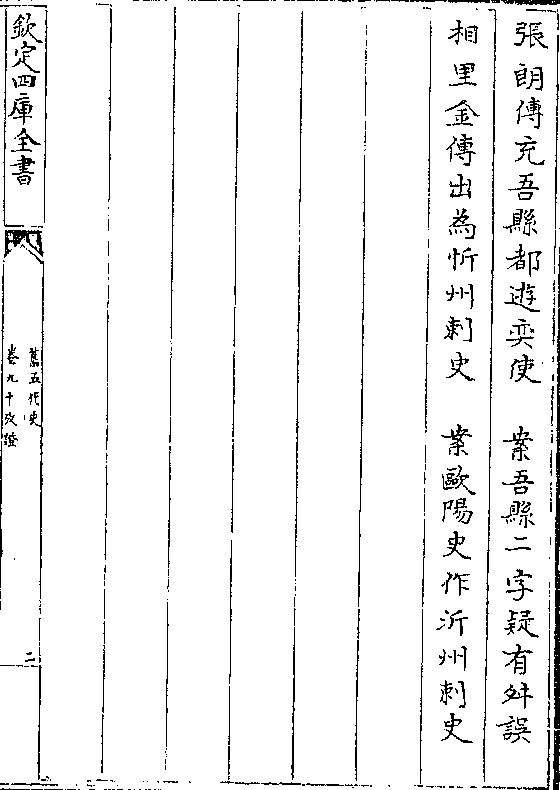 張朗傳充吾縣都遊奕使　案吾縣二字疑有舛誤
相里金傳出為忻州刺史　案歐陽史作沂州刺史
欽定四庫全書
舊五代史
卷九十攷證
二